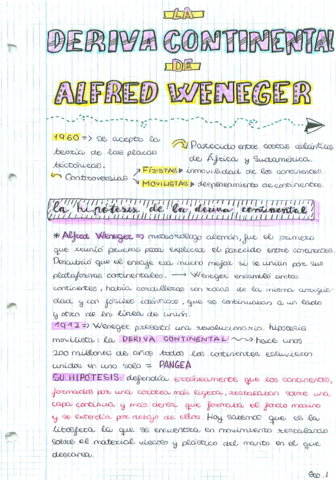 LA
DERIVA CONTINENTAL
DE
ALFRED WENEGER
1960 => se acepta la
teoría de las placas
tectónicas.
Controversias
Parecido entre costas atlánticas
de África y Sudamérica.
FIJISTAS → inmovilidad de los continentes
MOVILISTAS → desplazamiento de continentes.
la hipótesis de la deriva continental
* Alfred Weneger => meteorólogo alemán, fue el primero
que reunió pruebas para explicar el parecido entre continentes.
Descubrió que el encaje era mucho mejor si se unían por sus
plataformas continentales. → Weneger ensambló ambos
continentes, había cordilleras con rocas de la misma antigüe-
dad y con fósiles idénticos, que se continuaban a un lado
y otro de la línea de unión.
1912 => Weneger presentó una revolucionaria hipótesis
movilista: la DERIVA CONTINENTAL → hace unos
200 millones de años todos los continentes estuvieron
unidos en uno solo = PANGEA
SU HIPÓTESIS: defendía erróneamente que los continentes,
formados por una corteza más ligera, resbalaban sobre una
capa continua y más densa que formaba el fondo marino
y se extendía por debajo de ellos. Hoy sabemos que es la
litosfera la que se encuentra en movimiento resbalando
sobre el material viscoso y plástico del manto en el que
descansa.